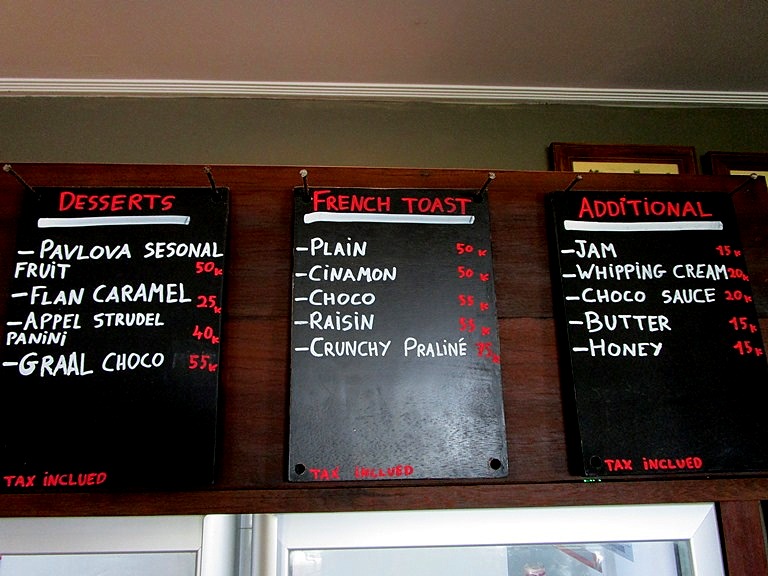 DESSERTS
-PAVLOVA SESONAL
FRUIT 50K
-FLAN CARAMEL 25K
-APPEL STRUDEL
PANINI 40K
-GRAAL CHOCO 55K
TAX INCLUED
FRENCH TOAST
-PLAIN 50K
-CINAMON 50K
-CHOCO 55K
-RAISIN 55K
-CRUNCHY PRALINÉ 75K
TAX INCLUED
ADDITIONAL
-JAM 15K
-WHIPPING CREAM 20K
-CHOCO SAUCE 20K
-BUTTER 15K
-HONEY 15K
TAX INCLUED